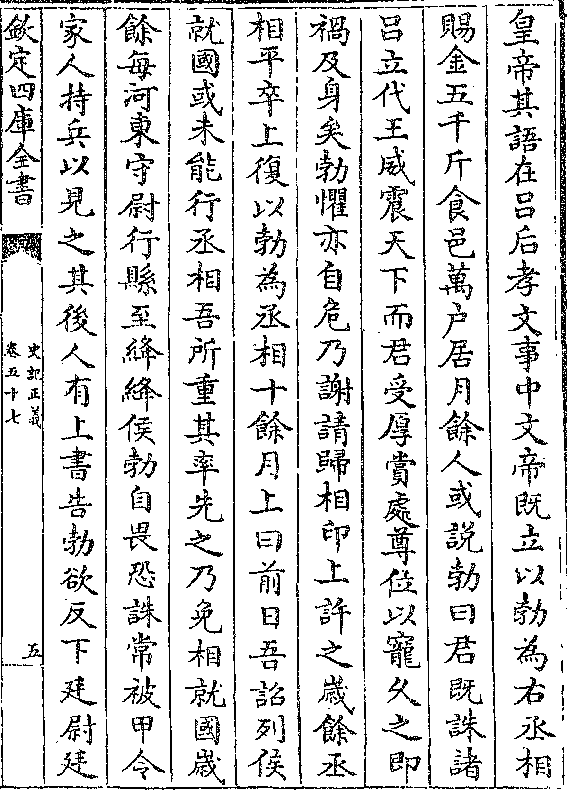 皇帝其語在吕后孝文事中文帝既立以勃為右丞相
賜金五千斤食邑萬户居月餘人或説勃曰君既誅諸
吕立代王威震天下而君受厚賞處尊位以寵久之即
禍及身矣勃懼亦自危乃謝請歸相印上許之歲餘丞
相平卒上復以勃為丞相十餘月上曰前日吾詔列侯
就國或未能行丞相吾所重其率先之乃免相就國歲
餘每河東守尉行縣至絳絳侯勃自畏恐誅常被甲令
家人持兵以見之其後人有上書告勃欲反下廷尉廷
欽定四庫全書
史記正義
卷五十七
五